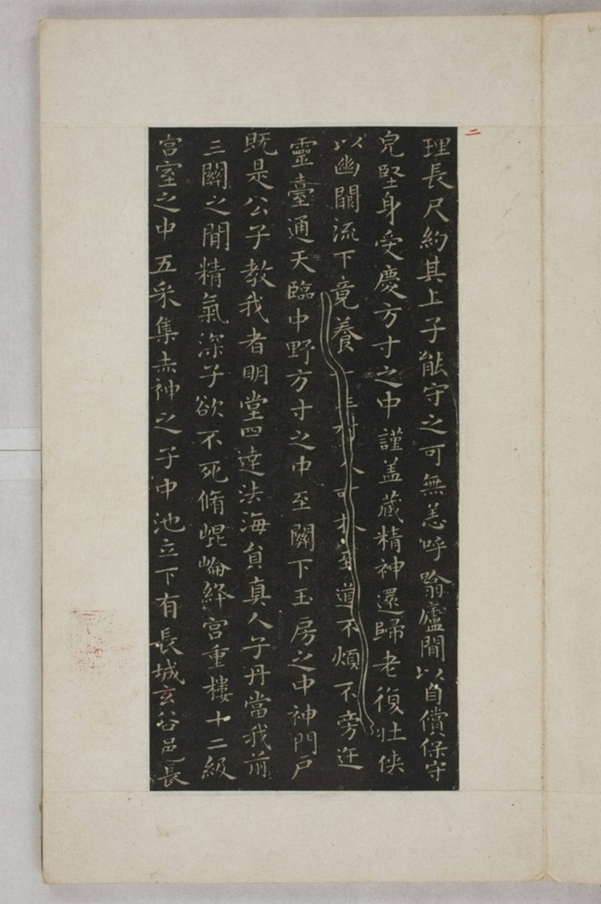 二
理長尺約其上子能守之可無恙呼翕廬間以自償保守
皃堅身受慶方寸之中謹盖藏精神還歸老復壯俠
以幽闕流下竟養至道不煩不旁迕
靈臺通天臨中野方寸之中至關下玉房之中神門戶
既是公子教我者明堂四達法海員真人子丹當我前
三關之間精氣深子欲不死脩崐崘絳宮重樓十二級
宮室之中五采集赤神之子中池立下有長城玄谷邑長